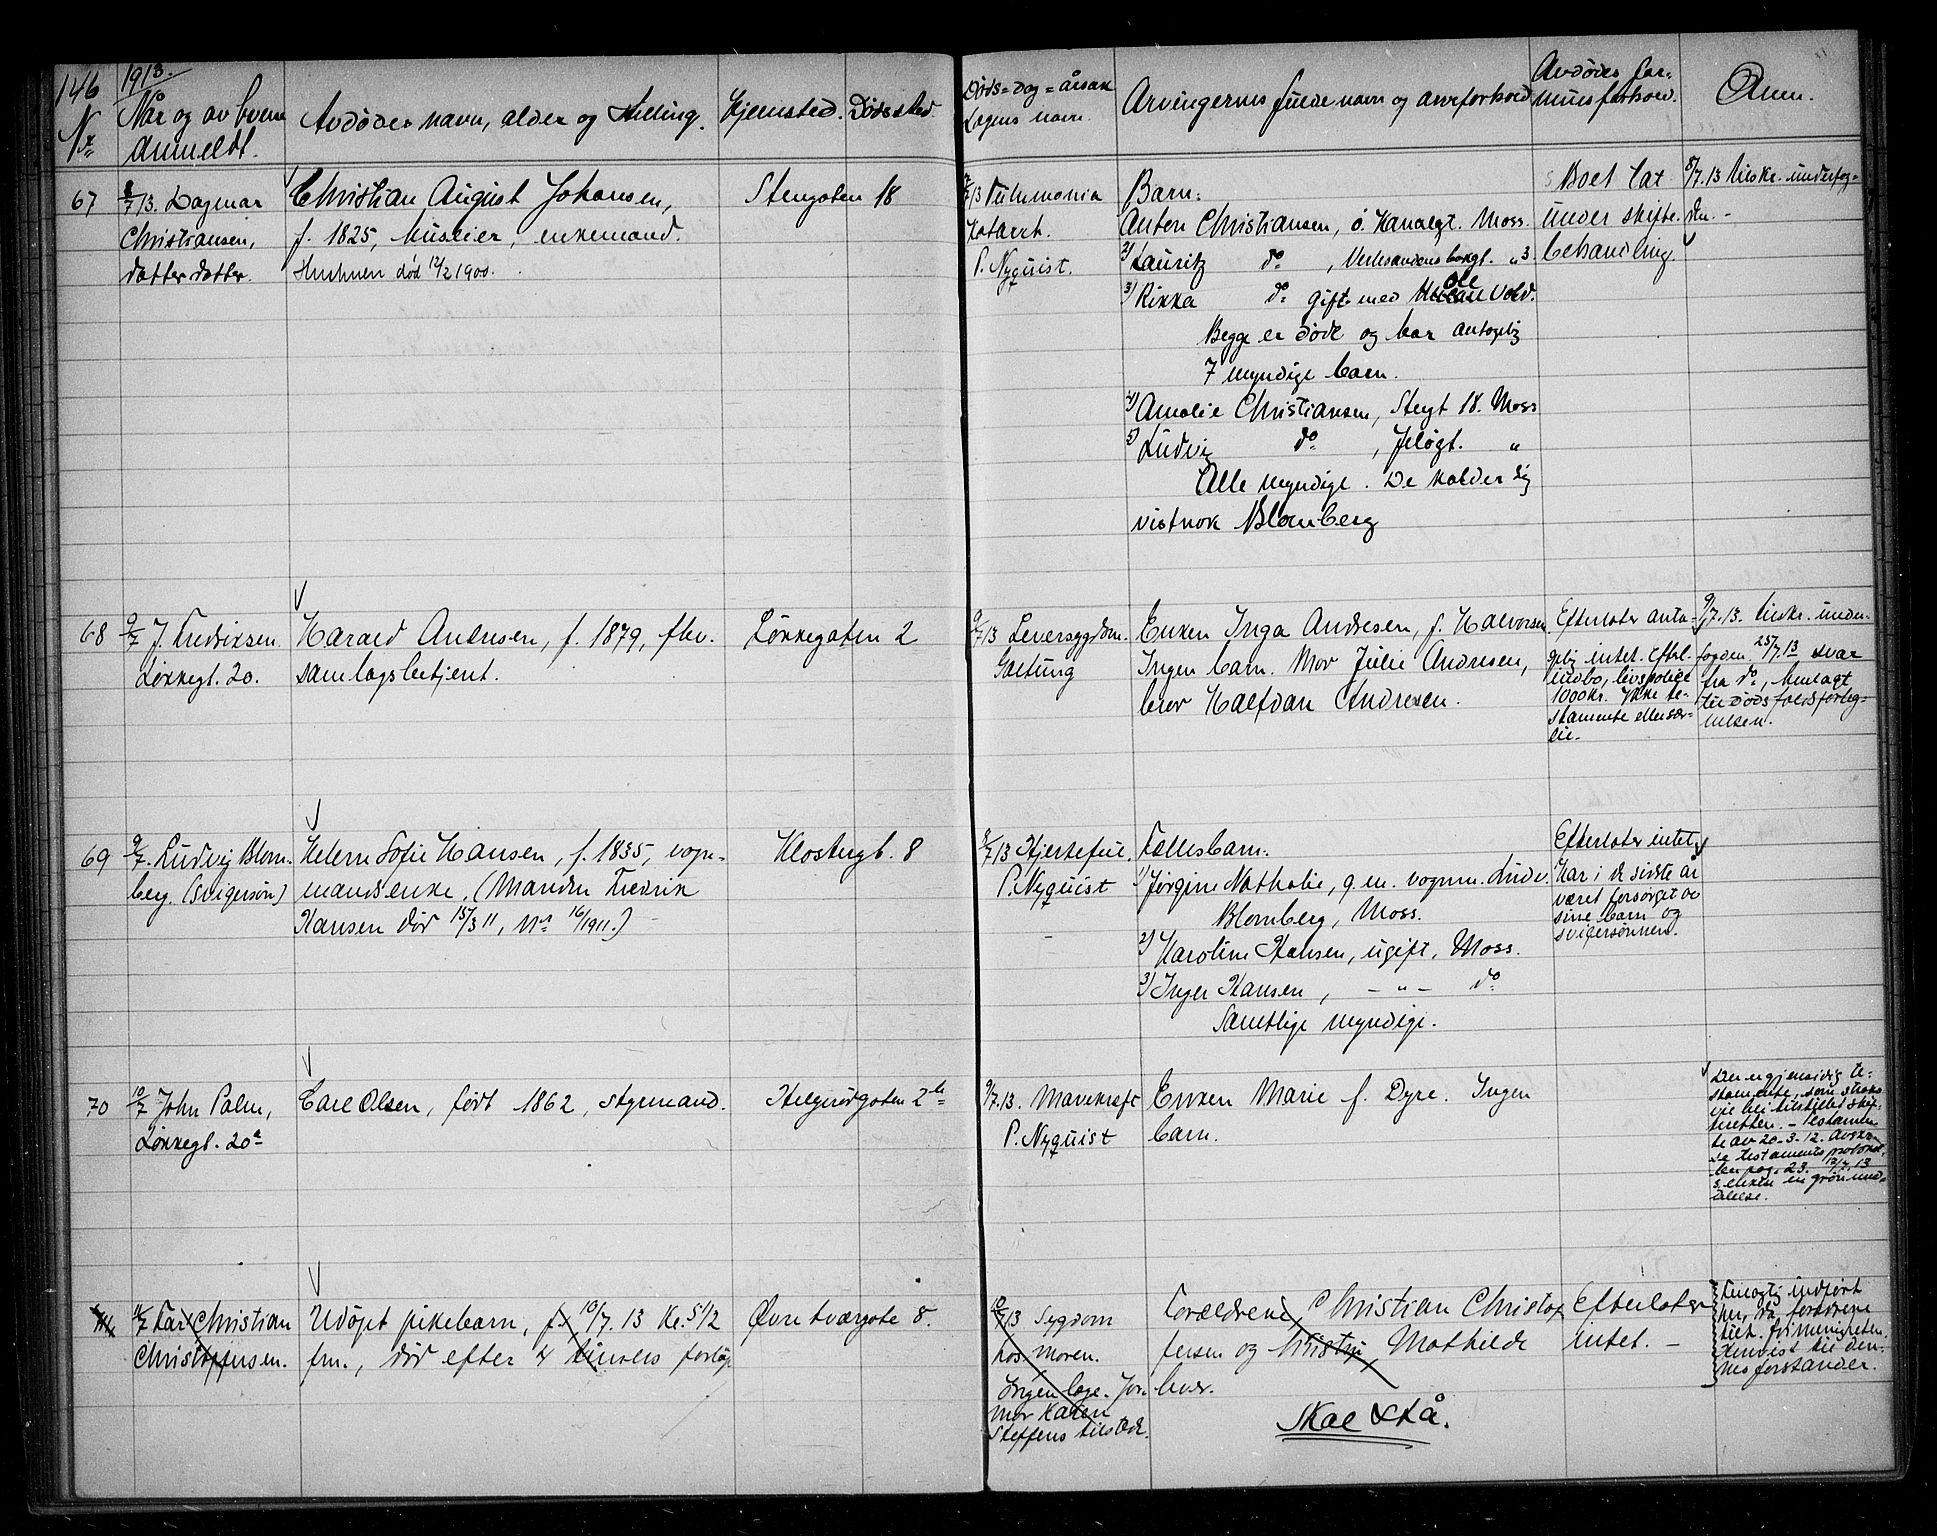 146
1913.
Nr.
Når og av hvem anmeldt.
Avdødes navn, alder og stilling.
Hjemsted.
Dødssted
Døds-dag-årsak
Lægens navn.
Arvingernes fulde navn og arveforhold
Avdødes for-
muesforhold.
Anm.
67
8/7 13. Dagmar
Christiansen,
datter datter.
Christian August Johansen,
f. 1825, huseier, enkemand.
Hustruen død 12/2 1900.
Stengaten 18
7/13 Pneumonia
Katarrh.
P. Nyquist.
Barn:
Anton Christiansen, ö. Kanalgt. Moss.
2) Lauritz do , Verlesandens bakgt. " 3
3) Rikka do gift med Ole Vold.
Begge er døde og har antagelig
7 myndige barn.
4) Amalie Christiansen, Stengt 18. Moss
5) Ludvig do , Jeløgt. "
Alle myndige. De kalder sig
vistnok Blomberg
Boet tat
under skifte-
behandling.
8/7.13 tilskr. underfog-
den.
68
9/7 J. Fredriksen
Løkkegt. 20.
Harald Andresen, f. 1879, fhv.
samlagsbetjent.
Løkkegaten 2
9/7 13 Leversygdom.
Galtung
Enken Inga Andresen, f. Halvorsen
Ingen barn. Mor Julie Andresen,
bror Halfdan Andresen.
Efterlater anta-
gelig intet. Efterl.
indbo, livspolice
1000 kr. Ikke te-
stamente eller sær-
eie.
9/7.13. tilskr. under-
fogden. 25/7 13 svar
fra do, henlagt
til dødsfaldsforteg-
nelsen.
69
9/7. Ludvig Blom-
berg. (Svigersøn)
Helene Sofie Hansen, f. 1835, vogn-
mandsenke, (Manden Fredrik
Hansen død 15/3 11, nr 16/1911.)
Klostergt. 8
8/7 13 Hjertefeil.
P. Nyquist
Fællesbarn.
1) Jørgine Nathalie, g. m. vognm. Ludv.
Blomberg, Moss.
2) Karoline Hansen, ugift, Moss.
3) Inger Hansen, - " - do
Samtlige myndige.
Efterlater intet
Har i de sidste år
været forsørget av
sine barn og
svigersønnen.
70
10/7 John Palm,
Løkkegt. 20a
Carl Olsen, født 1862, styrmand.
Helgerødgaten 2b
9/7.13. Mavekræft
P. Nyquist
Enken Marie f. Dyre. Ingen
barn.
Der er gjensidig te-
stamente, som straks
vil bli tilstillet skif-
teretten. - Testamen-
te av 20-3-12. Avskr.
se testamentsprotokol-
len pag. 23. 12/7.13
s. enken en grøn med-
delelse.
11/7 Far Christian
Christoffersen.
Udøpt pikebarn, f. 10/7. 13 Kl. 5 1/2
fm., død efter 4 timers forløp
Øvre tværgate 8.
10/7 13 Sygdom
hos moren.
Ingen læge. Jor-
mor Karen
Steffens tilstede.
Forældrene Christian Christof-
fersen og Mathilde
hver.
Skal utstå.
Efterlater
intet. -
Feilagtig indført
her, da forældrene
tilh. frimenigheten.
Henvist til den-
nes forstander.